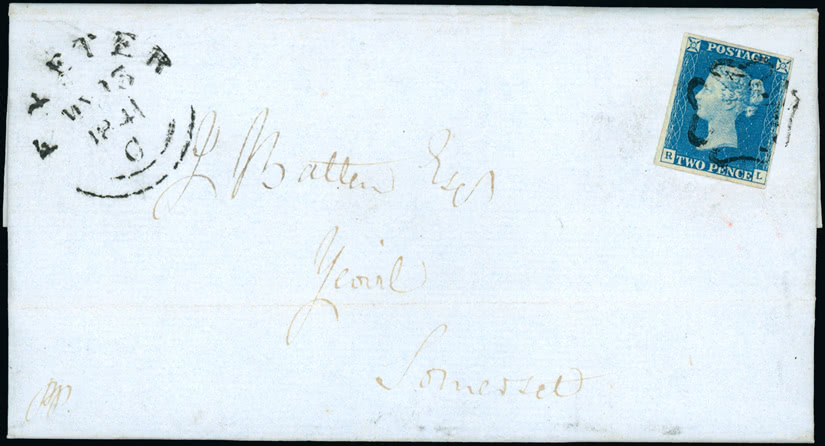 EXETER
1841
C
POSTAGE
R TWO PENCE L
J Batten Esqr
Yeovil
Somerset